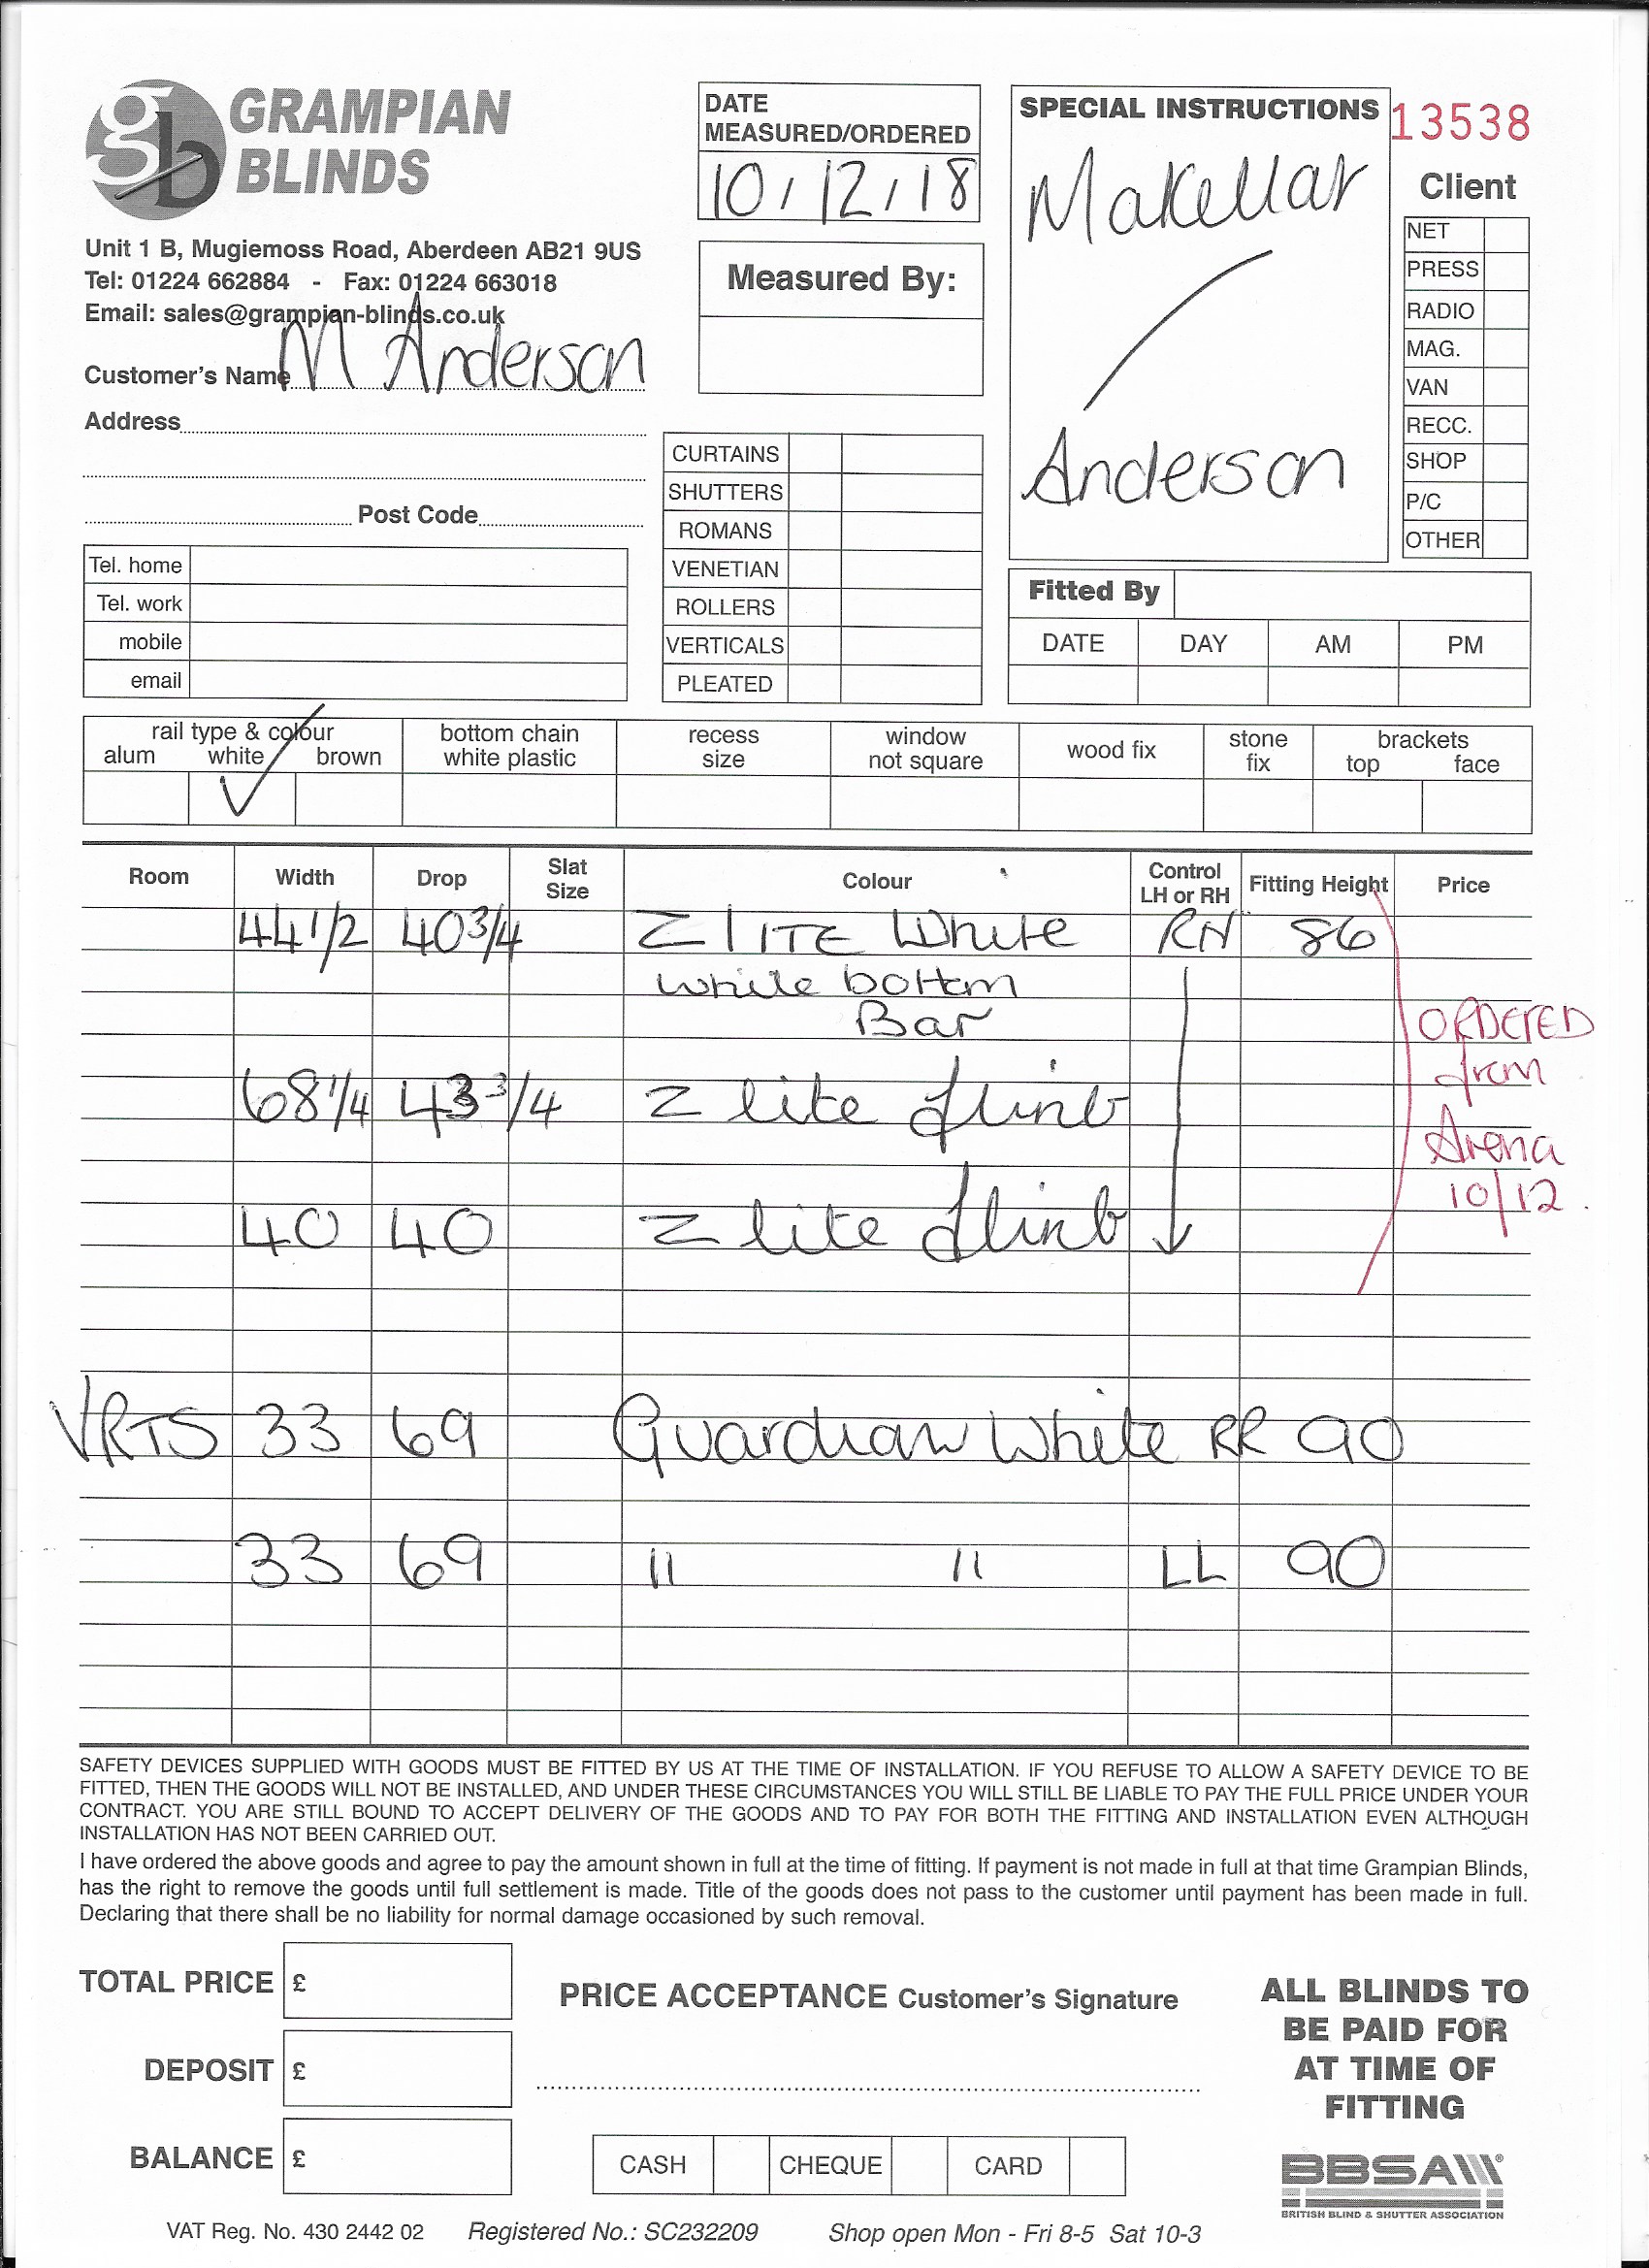 GRAMPIAN
BLINDS
Unit 1 B, Mugiemoss Road, Aberdeen AB21 9US
Tel: 01224 662884 - Fax: 01224 663018
Email: sales@grampian-blinds.co.uk
Customer's Name M Anderson
Address
Post Code
Tel. home
Tel. work
mobile
email
DATE
MEASURED/ORDERED
10/12/18
Measured By:
CURTAINS
SHUTTERS
ROMANS
VENETIAN
ROLLERS
VERTICALS
PLEATED
SPECIAL INSTRUCTIONS
Makellar
/
Anderson
13538
Client
NET
PRESS
RADIO
MAG.
VAN
RECC.
SHOP
P/C
OTHER
Fitted By
DATE DAY AM PM
rail type & colour
alum white brown
✓
bottom chain
white plastic
recess
size
window
not square
wood fix
stone
fix
brackets
top face
Room Width Drop Slat Size Colour Control LH or RH Fitting Height Price
44 1/2 40 3/4 Z LITE White RH 86
white bottom
Bar
68 1/4 43 3/4 Z lite flint
40 40 Z lite flint
ORDERED
from
Arena
10/12.
VRTS 33 69 Guardian White RR 90
33 69 " " LL 90
SAFETY DEVICES SUPPLIED WITH GOODS MUST BE FITTED BY US AT THE TIME OF INSTALLATION. IF YOU REFUSE TO ALLOW A SAFETY DEVICE TO BE
FITTED, THEN THE GOODS WILL NOT BE INSTALLED, AND UNDER THESE CIRCUMSTANCES YOU WILL STILL BE LIABLE TO PAY THE FULL PRICE UNDER YOUR
CONTRACT. YOU ARE STILL BOUND TO ACCEPT DELIVERY OF THE GOODS AND TO PAY FOR BOTH THE FITTING AND INSTALLATION EVEN ALTHOUGH
INSTALLATION HAS NOT BEEN CARRIED OUT.
I have ordered the above goods and agree to pay the amount shown in full at the time of fitting. If payment is not made in full at that time Grampian Blinds,
has the right to remove the goods until full settlement is made. Title of the goods does not pass to the customer until payment has been made in full.
Declaring that there shall be no liability for normal damage occasioned by such removal.
TOTAL PRICE £
DEPOSIT £
BALANCE £
PRICE ACCEPTANCE Customer's Signature
CASH CHEQUE CARD
ALL BLINDS TO
BE PAID FOR
AT TIME OF
FITTING
BBSA
BRITISH BLIND & SHUTTER ASSOCIATION
VAT Reg. No. 430 2442 02 Registered No.: SC232209 Shop open Mon - Fri 8-5 Sat 10-3